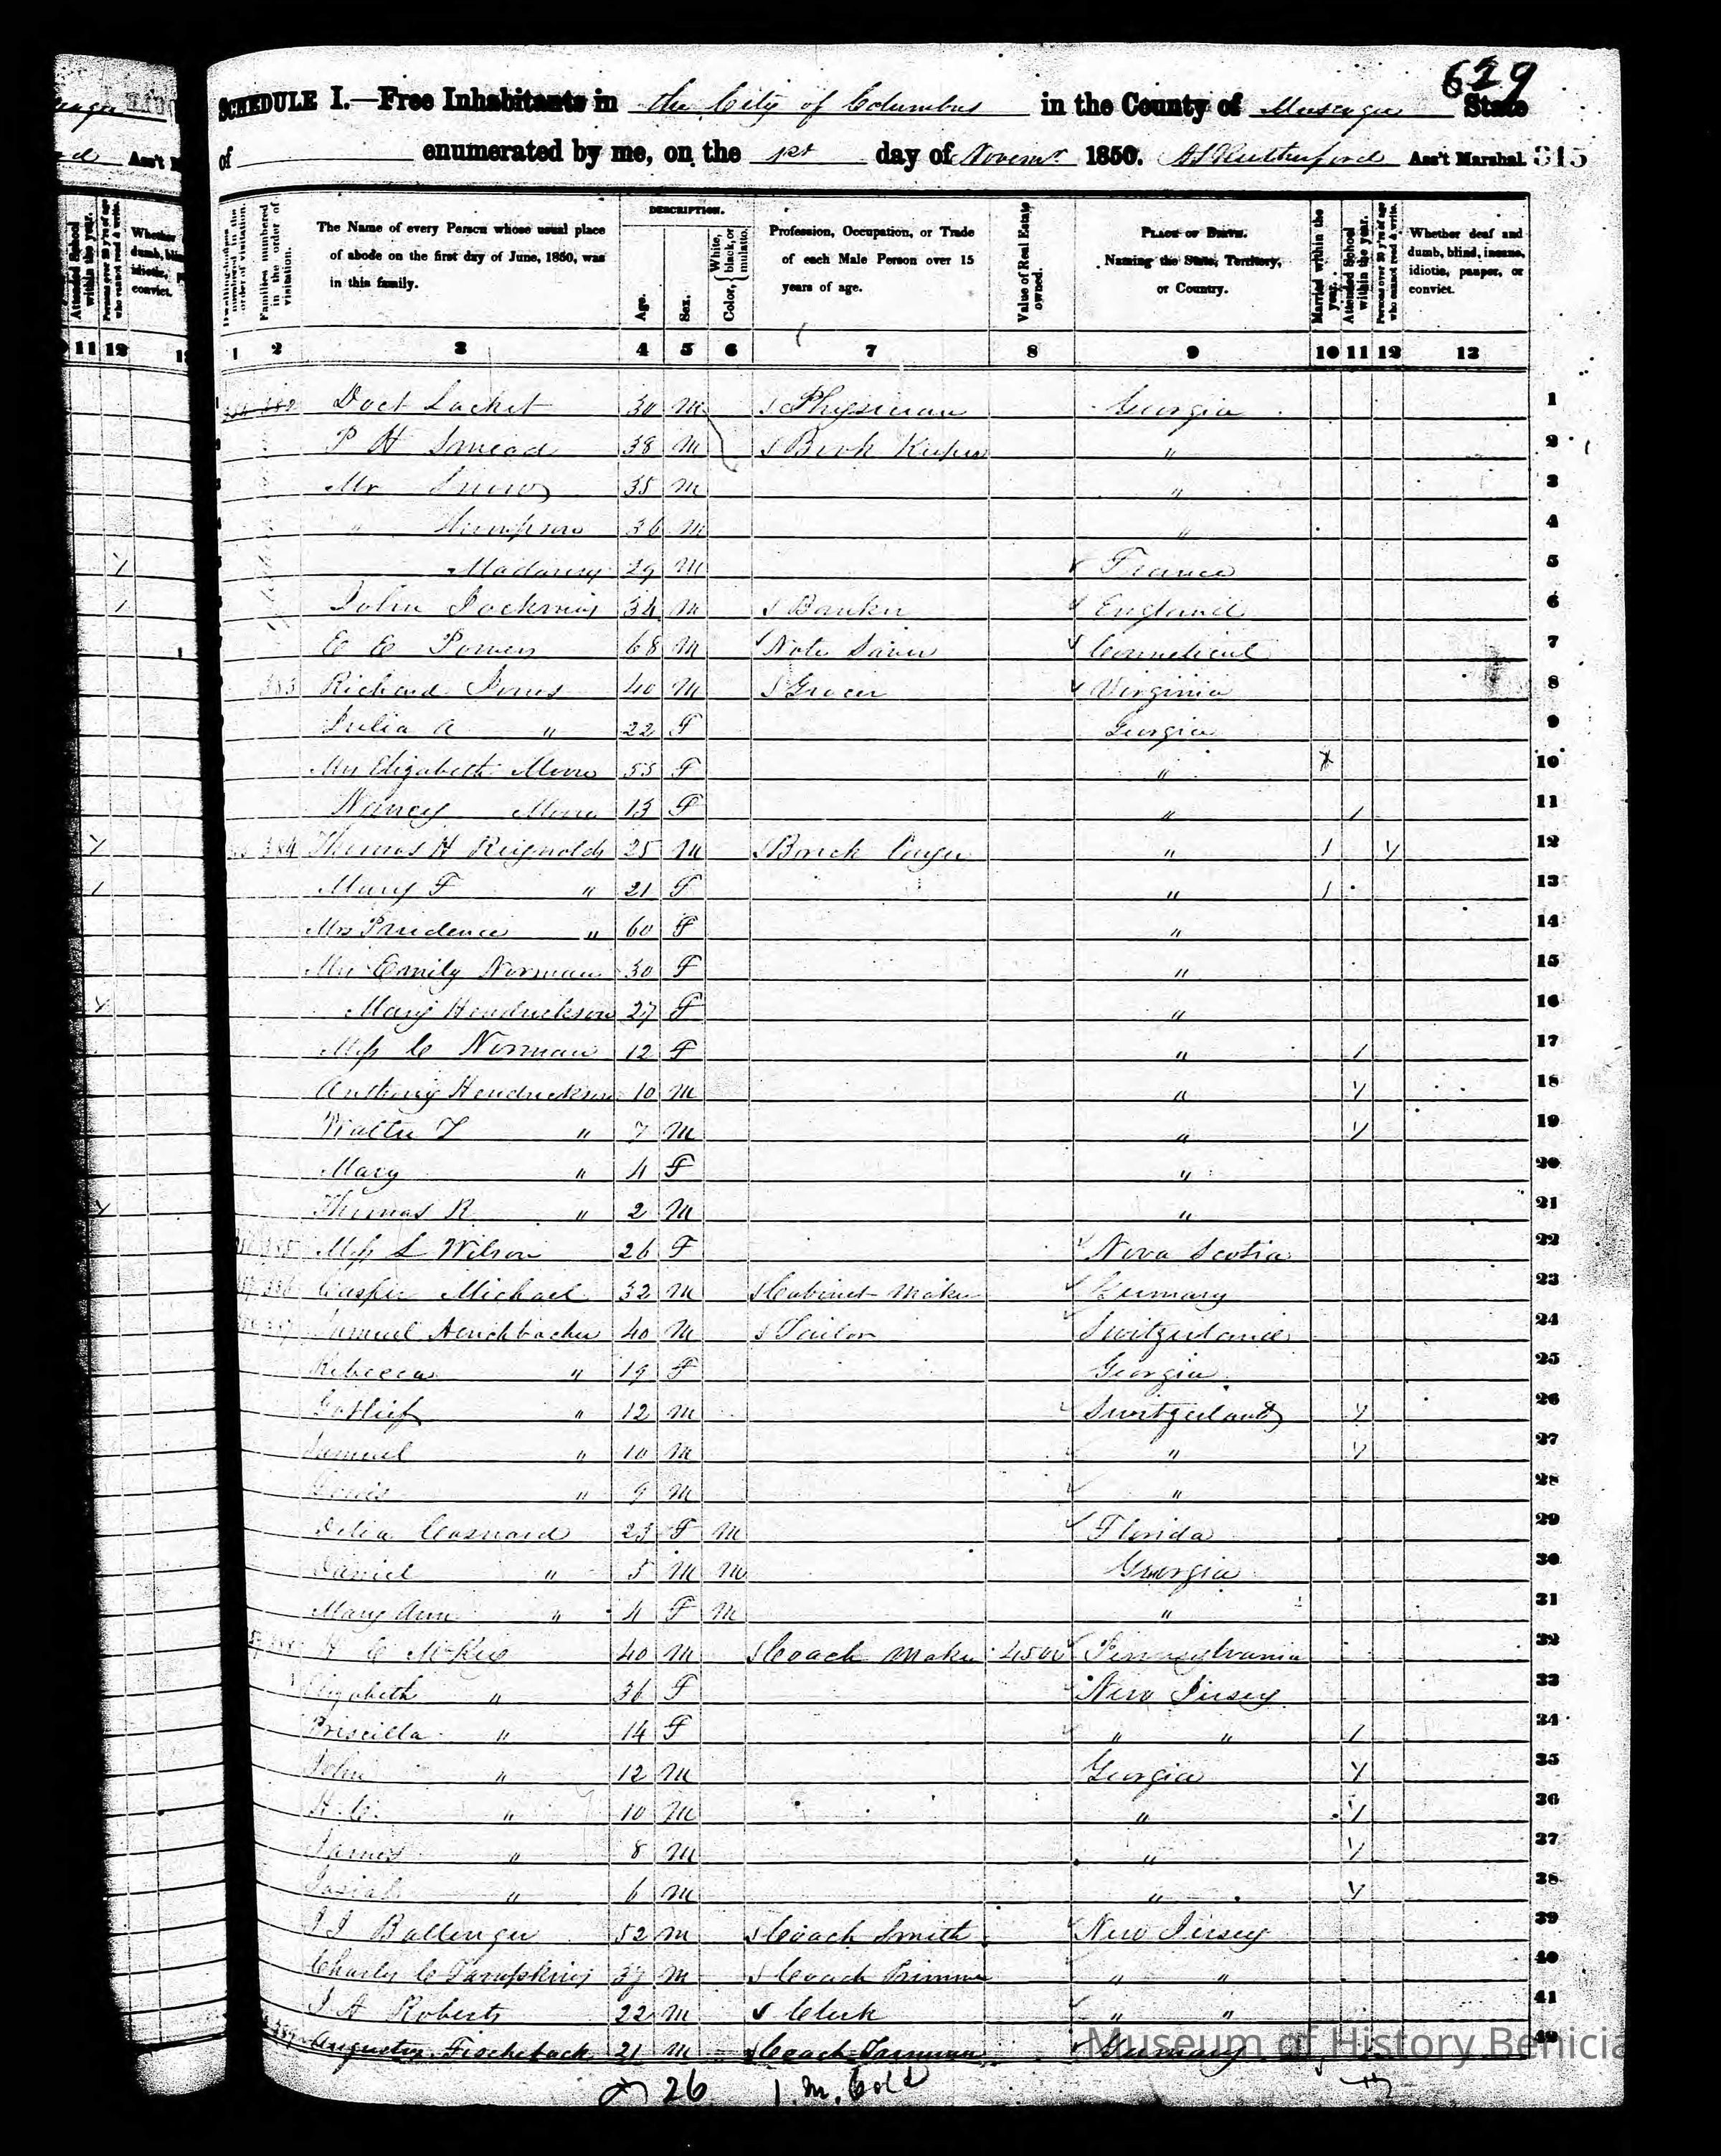 629
SCHEDULE I.—Free Inhabitants in the City of Columbus in the County of Muscogee State
of enumerated by me, on the 1st day of Novemr 1850. A S Rutherford Ass't Marshal. 315
Ass't M
DESCRIPTION.
Dwelling-houses numbered in the order of visitation.
Families numbered in the order of visitation.
The Name of every Person whose usual place of abode on the first day of June, 1850, was in this family.
Age.
Sex.
Color, { White, black, or mulatto.
Profession, Occupation, or Trade of each Male Person over 15 years of age.
Value of Real Estate owned.
PLACE OF BIRTH. Naming the State, Territory, or Country.
Married within the year.
Attended School within the year.
Persons over 20 y'rs of age who cannot read & write.
Whether deaf and dumb, blind, insane, idiotic, pauper, or convict.
1 2 3 4 5 6 7 8 9 10 11 12 13
Doct Lacket 30 M Physician Georgia 1
P H Smead 38 M Book Keeper " 2
Mr Snow 35 M " 3
" Simpson 36 M " 4
29 M France 5
John 34 M Banker England 6
E E Powers 68 M Connecticut 7
383 Richard Jones 40 M Grocer Virginia 8
Julia A " 22 F Georgia 9
Mrs Elizabeth Moore 55 F " 10
Nancy Moore 13 F " / 11
384 Thomas H Reignolds 25 M Brick Layer " / / 12
Mary F " 21 F " / 13
Mrs Prudence " 60 F " 14
Mrs Emily Norman 30 F " 15
Mary Hendrickson 27 F " 16
Miss C Norman 12 F " / 17
Anthony Hendrickson 10 M " / 18
Walter T " 7 M " / 19
Mary " 4 F " 20
Thomas R " 2 M " 21
Miss L Wilson 26 F Nova Scotia 22
Casper Michael 32 M Cabinet Maker Germany 23
Samuel 40 M Tailor Switzerland 24
Rebecca " 19 F Georgia 25
Gotlief " 12 M Switzerland / 26
Samuel " 10 M " / 27
Lewis " 9 M " 28
Delia 23 F M Florida 29
Daniel " 5 M M Georgia 30
Mary Ann " 4 F M " 31
H C McKee 40 M Coach Maker 4500 Pennsylvania 32
Elizabeth " 36 F New Jersey 33
Priscilla " 14 F " " / 34
John " 12 M Georgia / 35
H. C. " 10 M " / 36
James " 8 M " / 37
Josiah " 6 M " / 38
J J Ballenger 52 M Coach Smith New Jersey 39
Charly C Tampskins 37 M Coach Trimmer " " 40
J A Roberts 22 M Clerk " " 41
389 Augustus Fischeback 21 M Coach Germany 42
26 1. m. Cold
Museum of History Benicia